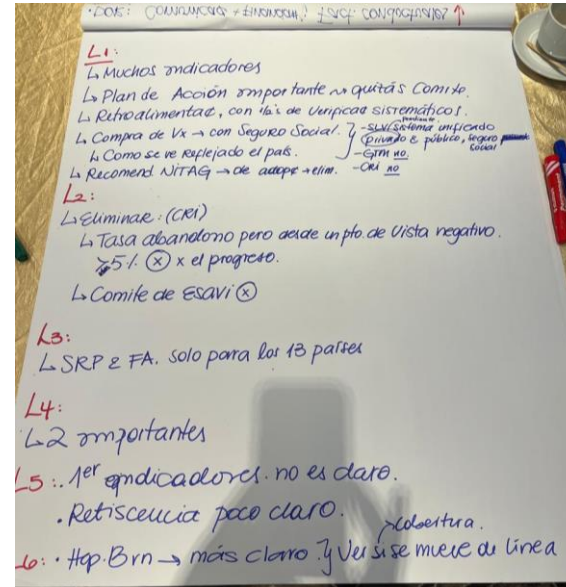 · DOTS: Comunicada + Financiam; Fact. conductuales ↑
L1:
↳ Muchos indicadores
↳ Plan de Acción importante ~> quitás Comité.
↳ Retroalimentac, con de verificac sistemáticos.
↳ Compra de Vx → con Seguro Social. } - sistema unificado
↳ Como se ve reflejado el país. Privado & público, seguro social
- GTM no.
↳ Recomend NITAG → de adopc → elim. - CRI no
L2:
↳ Eliminar: (CRI)
↳ Tasa abandono pero desde un pto. de vista negativo.
>5%. ⓧ x el progreso.
↳ Comite de ESAVI ⓧ
L3:
↳ SRP & FA. solo para los 13 países
L4:
↳ 2 importantes
L5: · 1er indicadores. no es claro.
· Retiscencia poco claro.
> cobertura.
L6: · Hep. Brn → más claro } Ver si se mueve de línea